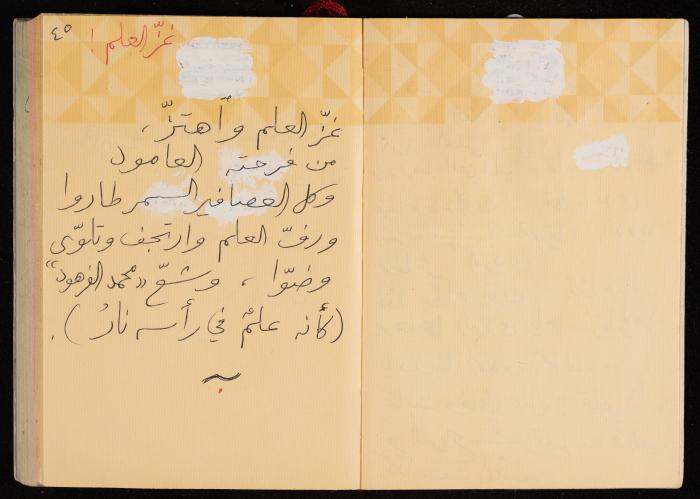 ٤٥
غزّ العلم !
غزّ العلم وأهتزّ،
من فرحته العامود
وكل العصافير السمر طاروا
ورفّ العلم وارتجف وتلوّى
وضوّا ، وشعّ «محمد الفرهود"
(كأنه علمٌ في رأسه نارُ).